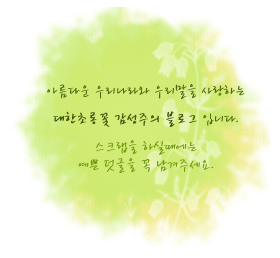 아름다운 우리나라와 우리말을 사랑하는
대한초롱꽃 감성주의 블로그 입니다.
스크랩을 하실때에는
예쁜 덧글을 꼭 남겨주세요.